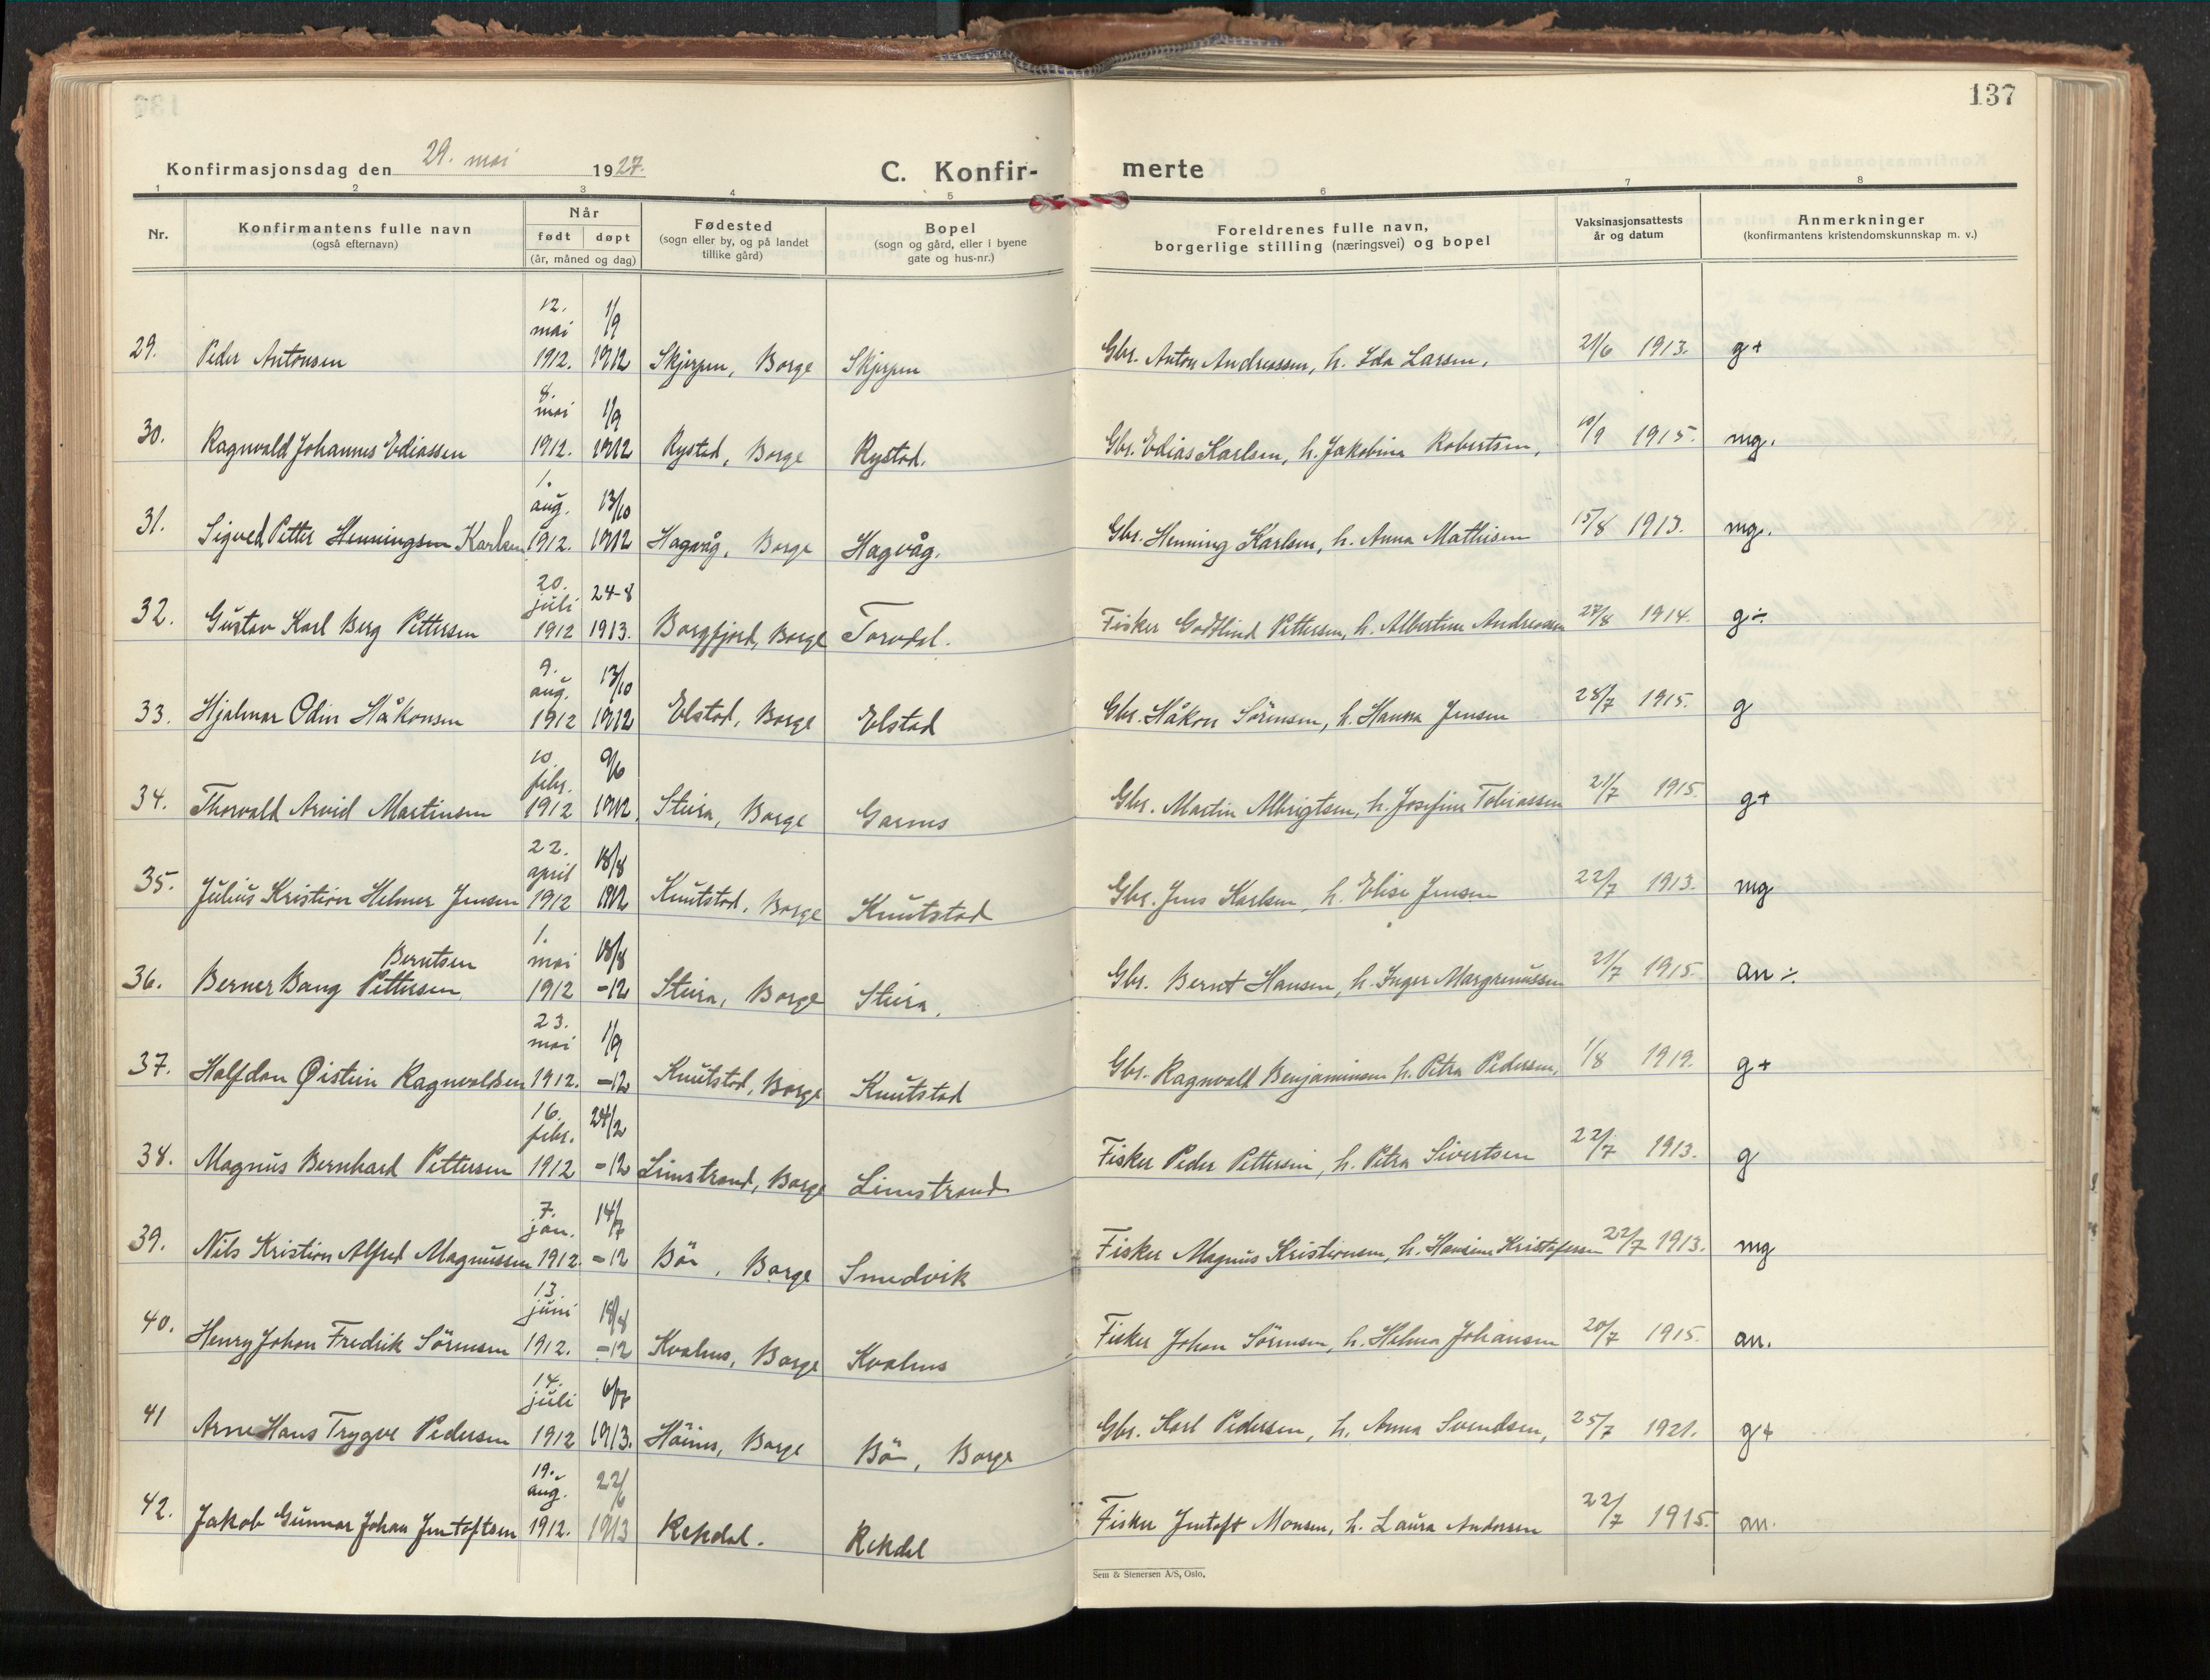 137
Konfirmasjonsdag den 29. mai 1927.
C. Konfir- merte
1 2 3 4 5 6 7 8
Nr.
Konfirmantens fulle navn
(også efternavn)
Når
født døpt
(år, måned og dag)
Fødested
(sogn eller by, og på landet
tillike gård)
Bopel
(sogn og gård, eller i byene
gate og hus-nr.)
Foreldrenes fulle navn,
borgerlige stilling (næringsvei) og bopel
Vaksinasjonsattests
år og datum
Anmerkninger
(konfirmantens kristendomskunnskap m. v.)
12. mai 1/9
29. Peder Antonsen 1912. 1912 Skjerpen, Borge Skjerpen Gbr. Anton Andreassen, h. Ida Larsen, 21/6 1913. g+
8. mai 1/9
30. Ragnvald Johannes Ediassen 1912. 1912 Rystad, Borge Rystad. Gbr. Edias Karlsen, h. Jakobine Robertsen, 10/9 1915. mg.
1. aug. 13/10
31. Sigved Petter Henningsen Karlsen 1912. 1912 Hagvåg, Borge Hagvåg. Gbr. Henning Karlsen, h. Anna Mathisen 15/8 1913. mg.
20. juli 24-8
32. Gustav Karl Berg Pettersen 1912 1913. Borgfjord, Borge Torvdal. Fisker Godtlind Pettersen, h. Albertine Andreassen 27/8 1914. g÷
9. aug. 13/10
33. Hjalmar Odin Håkonsen 1912 1912 Elstad, Borge Elstad Gbr. Håkon Sörensen, h. Hanna Jensen 28/7 1915. g
10. febr. 9/6
34. Thorvald Arvid Martinsen 1912 1912. Steira, Borge Garnes Gbr. Martin Albrigtsen, h. Josefine Tobiassen 21/7 1915. g+
22. april 18/8
35. Julius Kristian Helmer Jensen 1912 1912 Knutstad, Borge Knutstad Gbr. Jens Karlsen, h. Elise Jensen 22/7 1913. mg
Berntsen 1. mai 18/8
36. Berner Bang Pettersen 1912 -12 Steira, Borge Steira. Gbr. Bernt Hansen, h. Inger Margrenussen 21/7 1915. an ÷
23. mai 1/9
37. Halfdan Øistein Ragnvaldsen 1912. -12 Knutstad, Borge Knutstad Gbr. Ragnvald Benjaminsen h. Petra Pedersen, 1/8 1919. g+
16. febr. 24/2
38. Magnus Bernhard Pettersen 1912 -12 Limstrand, Borge Limstrand Fisker Peder Pettersen, h. Petra Sivertsen 22/7 1913. g
7. jan. 14/7
39. Nils Kristian Alfred Magnussen 1912. -12 Bö, Borge Smedvik Fisker Magnus Kristiansen, h. Hansine Kristofersen 22/7 1913. mg
13. juni 18/8
40. Henry Johan Fredrik Sörensen 1912. -12 Kvalnes, Borge Kvalnes Fisker Johan Sörensen, h. Helma Johansen 20/7 1915. an.
14. juli
41 Arne Hans Trygve Pedersen 1912 1913. Höines, Borge Bö, Borge Gbr. Karl Pedersen, h. Anna Svendsen, 25/7 1921. g+
19. aug. 22/6
42. Jakob Gunnar Johan Jentoftsen 1912. 1913 Rekdal. Rekdal Fisker Jentoft Monsen, h. Laura Andersen 22/7 1915. an.
Sem & Stenersen A/S, Oslo.